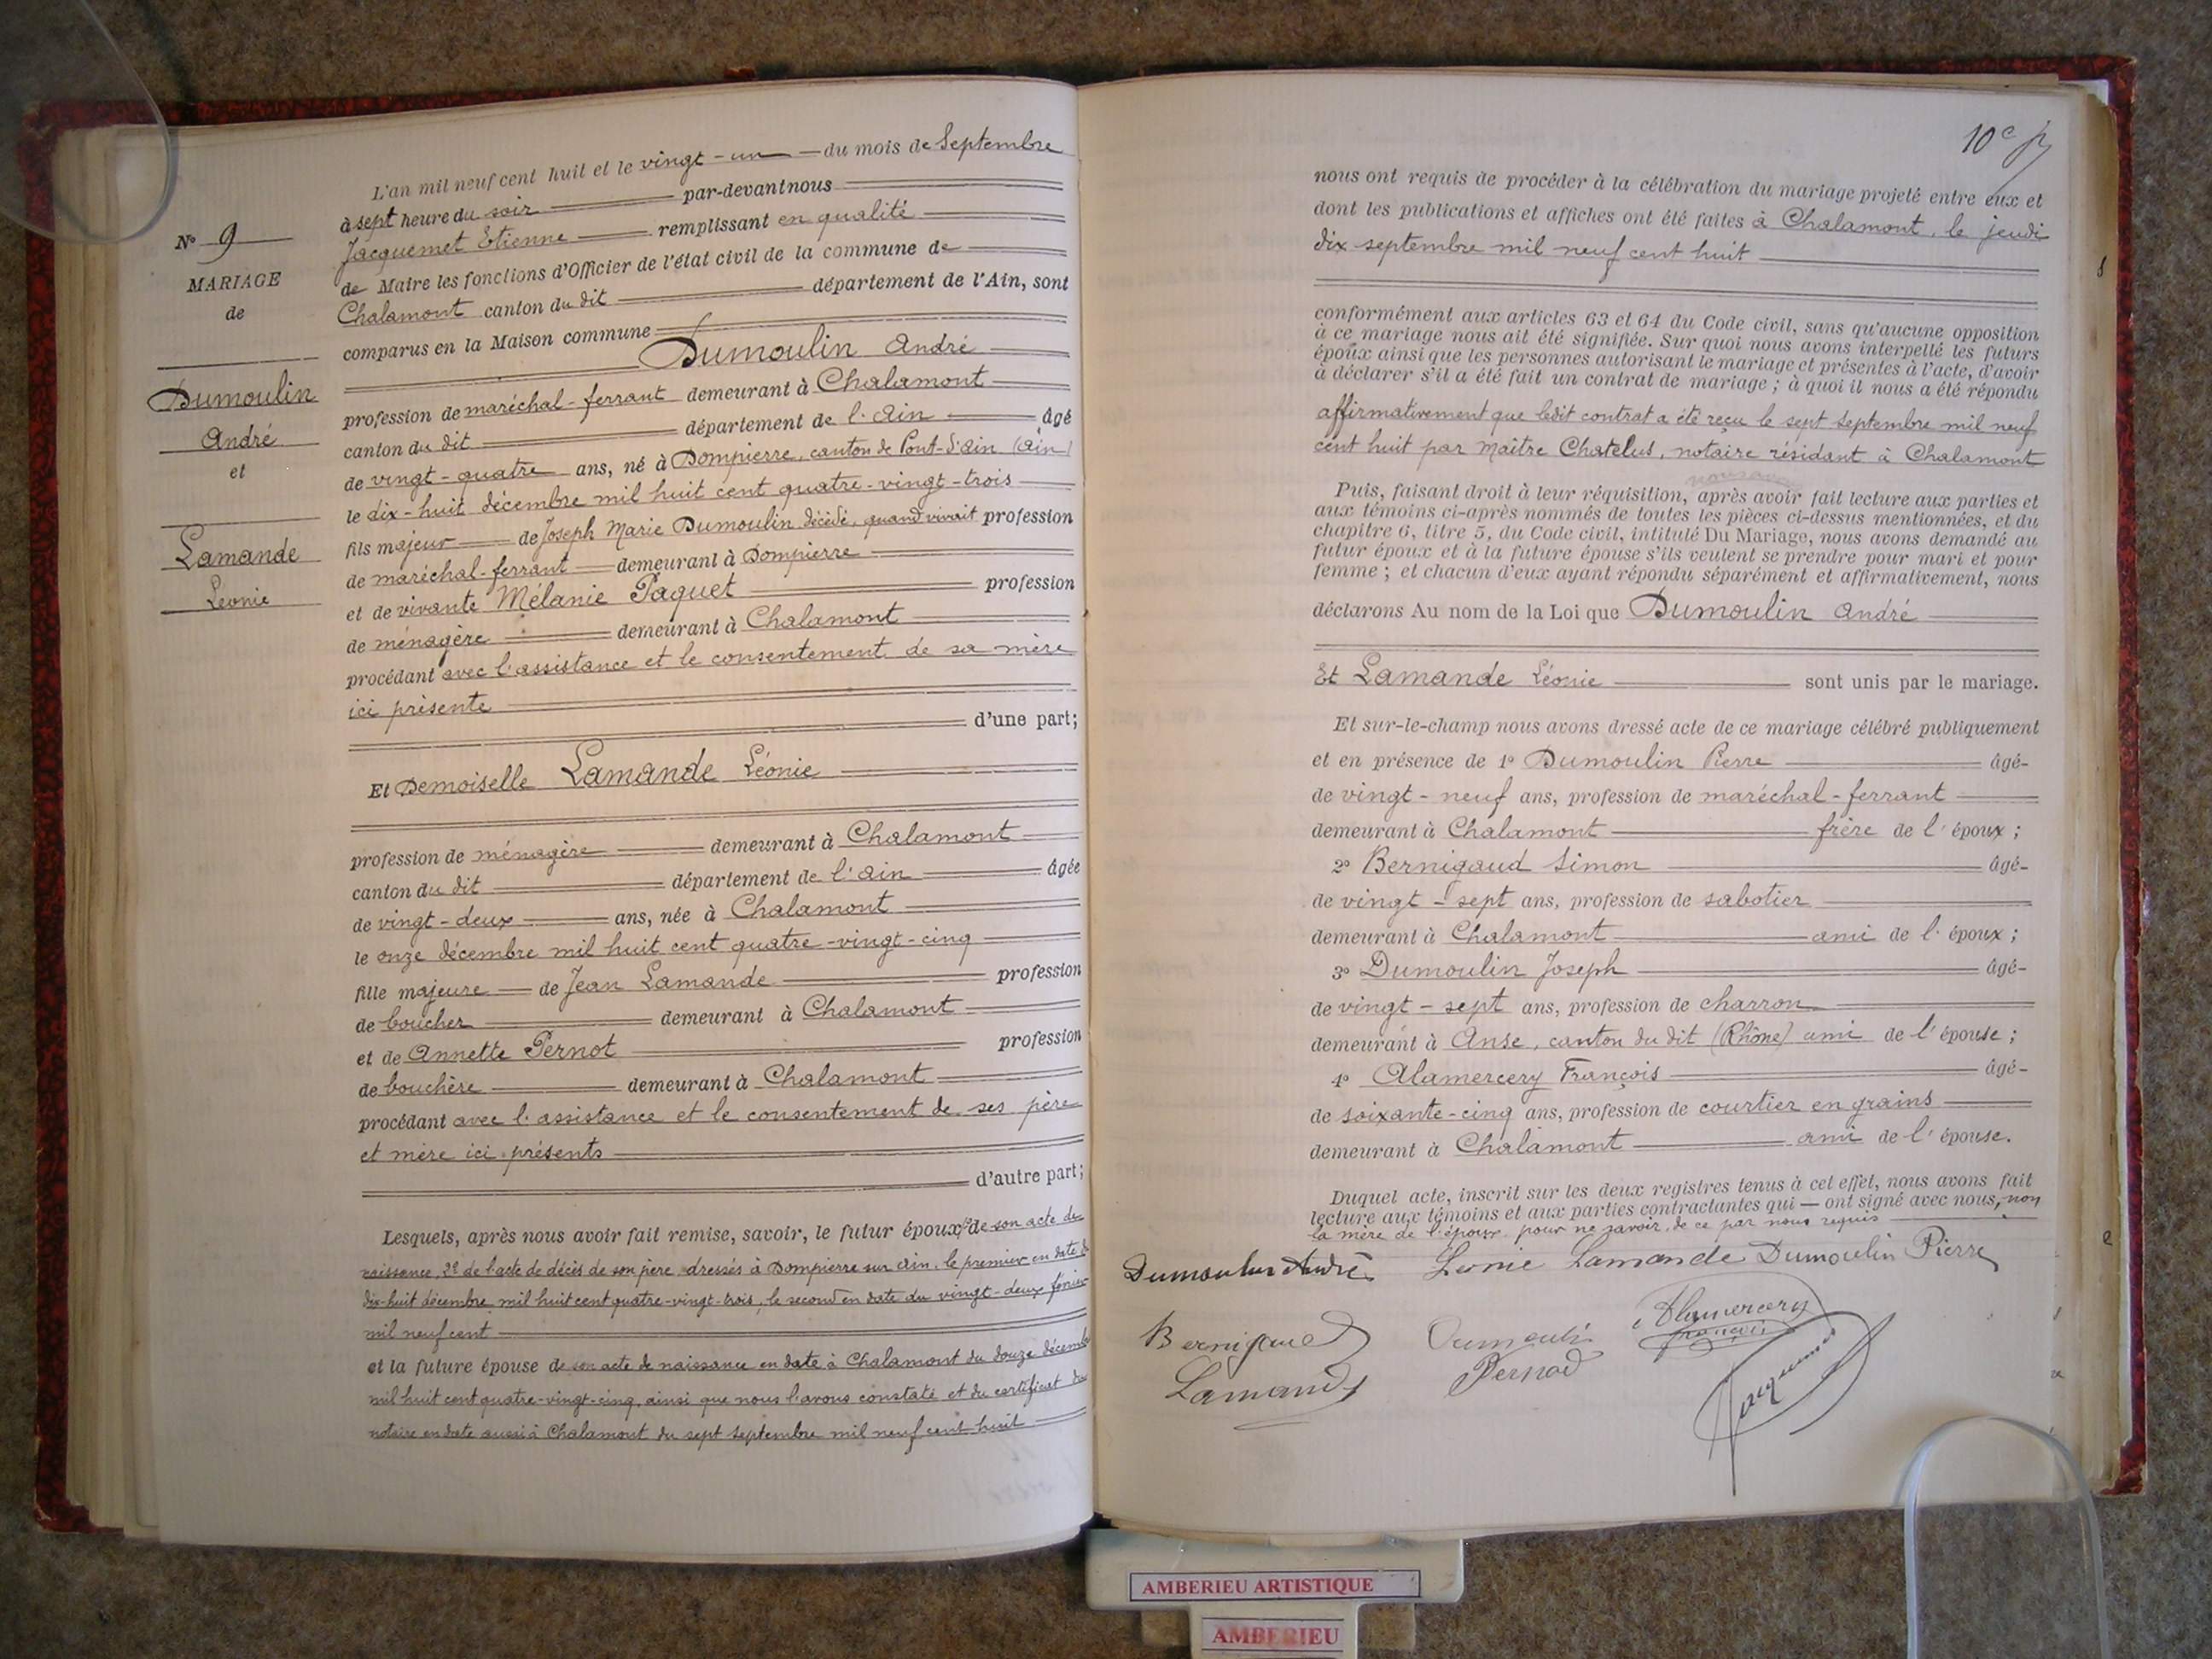 N° 9
MARIAGE
de
Dumoulin
André
et
Lamande
Léonie
L'an mil neuf cent huit et le vingt-un du mois de Septembre
à sept heure du soir par-devant nous
Jacquemet Etienne remplissant en qualité
de Maire les fonctions d'Officier de l'état civil de la commune de
Chalamont canton du dit département de l'Ain, sont
comparus en la Maison commune
Dumoulin André
profession de maréchal-ferrant demeurant à Chalamont
canton du dit département de l'Ain âgé
de vingt-quatre ans, né à Dompierre, canton de Pont-d'Ain (Ain)
le dix-huit décembre mil huit cent quatre-vingt-trois
fils majeur de Joseph Marie Dumoulin décédé, quand vivait profession
de maréchal-ferrant demeurant à Dompierre
et de vivante Mélanie Paquet profession
de ménagère demeurant à Chalamont
procédant avec l'assistance et le consentement de sa mère
ici présente
d'une part;
Et Demoiselle Lamande Léonie
profession de ménagère demeurant à Chalamont
canton du dit département de l'Ain âgée
de vingt-deux ans, née à Chalamont
le onze décembre mil huit cent quatre-vingt-cinq
fille majeure de Jean Lamande profession
de boucher demeurant à Chalamont
et de Annette Pernot profession
de bouchère demeurant à Chalamont
procédant avec l'assistance et le consentement de ses père
et mère ici présents
d'autre part;
Lesquels, après nous avoir fait remise, savoir, le futur époux, 1° de son acte de
naissance, 2° de l'acte de décès de son père, dressés à Dompierre sur Ain, le premier en date du
dix-huit décembre mil huit cent quatre-vingt-trois, le second en date du vingt-deux février
mil neuf cent
et la future épouse de son acte de naissance en date à Chalamont du douze décembre
mil huit cent quatre-vingt-cinq, ainsi que nous l'avons constaté et du certificat du
notaire en date aussi à Chalamont du sept septembre mil neuf cent huit
10e
nous ont requis de procéder à la célébration du mariage projeté entre eux et
dont les publications et affiches ont été faites à Chalamont, le jeudi
dix septembre mil neuf cent huit
conformément aux articles 63 et 64 du Code civil, sans qu'aucune opposition
à ce mariage nous ait été signifiée. Sur quoi nous avons interpellé les futurs
époux ainsi que les personnes autorisant le mariage et présentes à l'acte, d'avoir
à déclarer s'il a été fait un contrat de mariage ; à quoi il nous a été répondu
affirmativement que ledit contrat a été reçu le sept septembre mil neuf
cent huit par Maître Chatelus, notaire résidant à Chalamont
Puis, faisant droit à leur réquisition, après avoir fait lecture aux parties et
aux témoins ci-après nommés de toutes les pièces ci-dessus mentionnées, et du
chapitre 6, titre 5, du Code civil, intitulé Du Mariage, nous avons demandé au
futur époux et à la future épouse s'ils veulent se prendre pour mari et pour
femme ; et chacun d'eux ayant répondu séparément et affirmativement, nous
déclarons Au nom de la Loi que Dumoulin André
Et Lamande Léonie sont unis par le mariage.
Et sur-le-champ nous avons dressé acte de ce mariage célébré publiquement
et en présence de 1° Dumoulin Pierre âgé
de vingt-neuf ans, profession de maréchal-ferrant
demeurant à Chalamont frère de l'époux ;
2° Bernigaud Simon âgé
de vingt-sept ans, profession de sabotier
demeurant à Chalamont ami de l'époux ;
3° Dumoulin Joseph âgé
de vingt-sept ans, profession de charron
demeurant à Anse, canton du dit (Rhône) ami de l'épouse ;
4° Alamercery François âgé
de soixante-cinq ans, profession de courtier en grains
demeurant à Chalamont ami de l'épouse.
Duquel acte, inscrit sur les deux registres tenus à cet effet, nous avons fait
lecture aux témoins et aux parties contractantes qui — ont signé avec nous, non
la mère de l'époux pour ne savoir, de ce par nous requis
Dumoulin André Leonie Lamande Dumoulin Pierre
Bernigaud Dumoulin Alamercery
françois
Lamande Pernod Jacquemet
AMBERIEU ARTISTIQUE
AMBERIEU